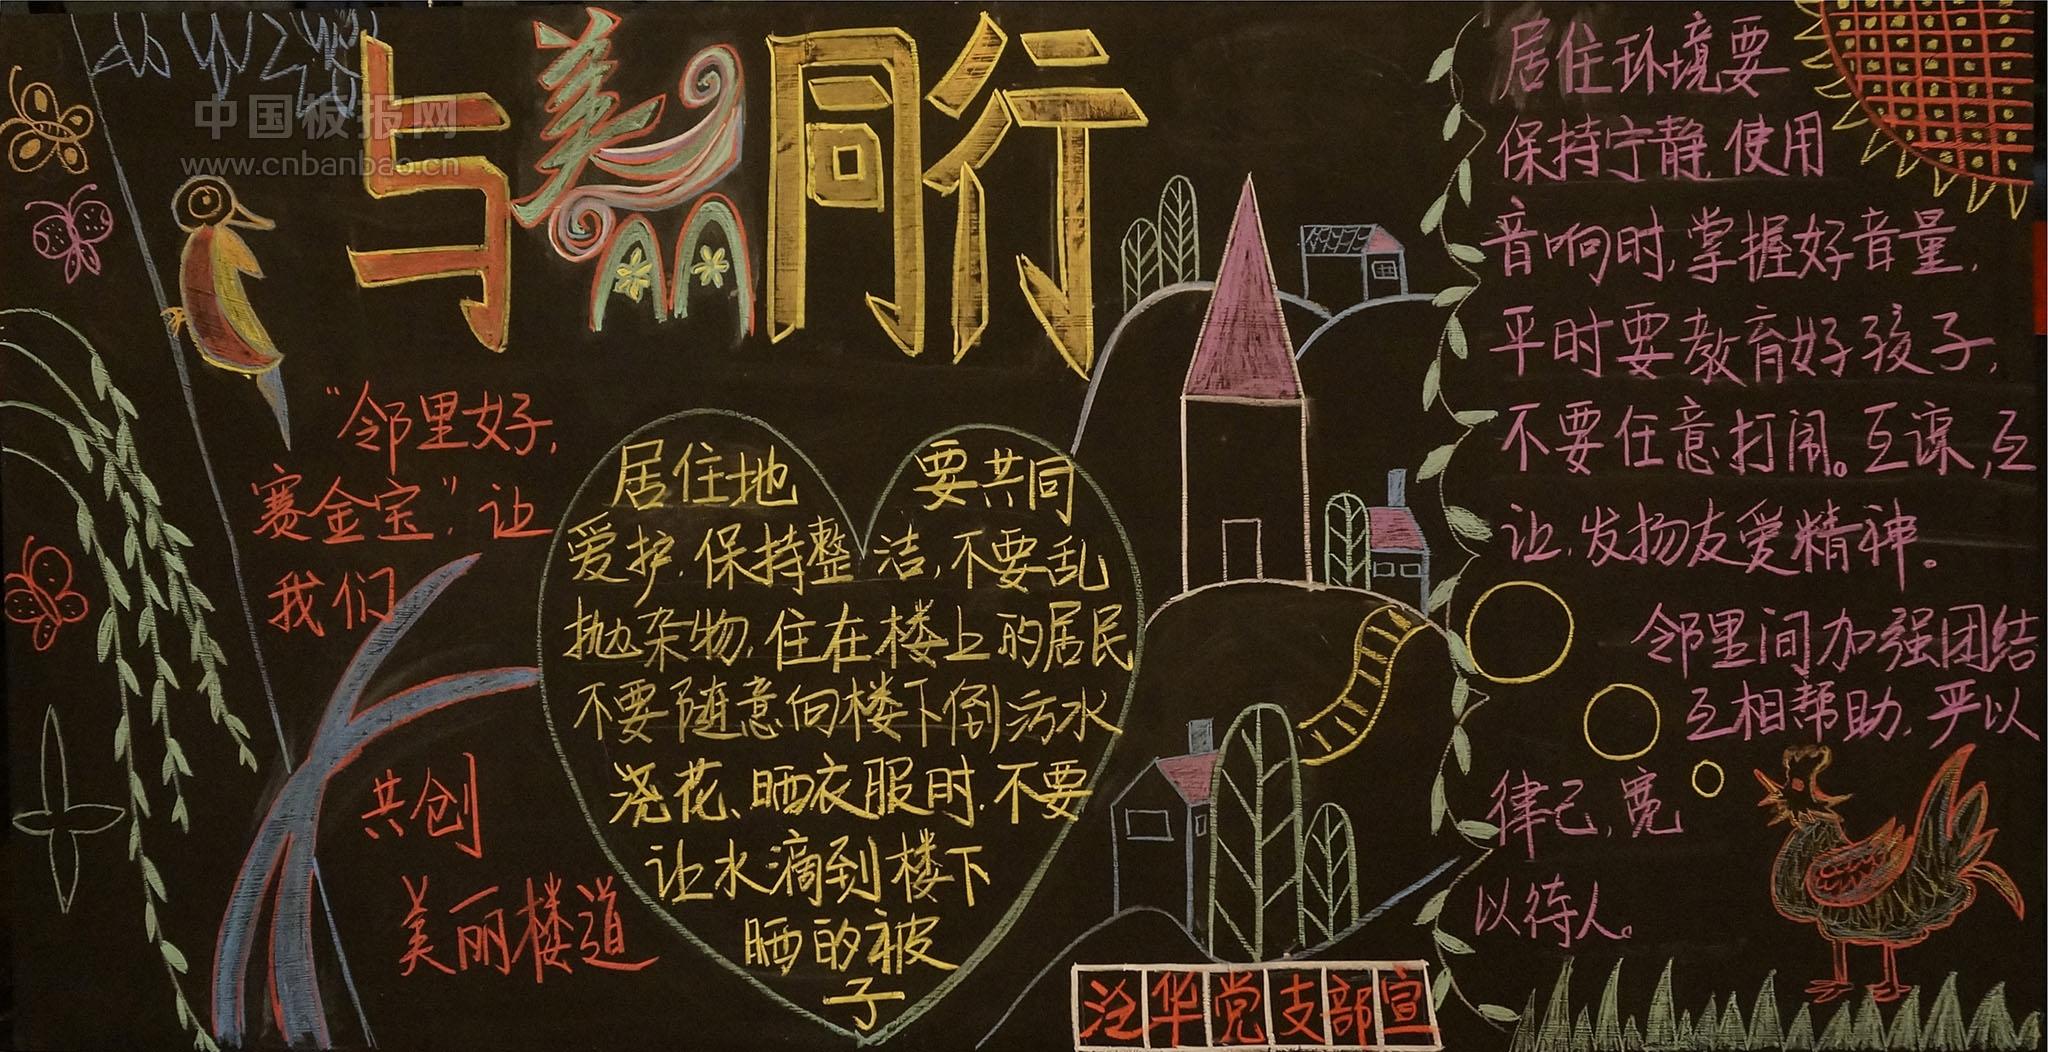 与美同行
中国板报网
www.cnbanbao.cn
“邻里好，
赛金宝”，让
我们
共创
美丽楼道
居住地 要共同
爱护，保持整洁，不要乱
抛杂物，住在楼上的居民
不要随意向楼下倒污水
浇花、晒衣服时，不要
让水滴到楼下
晒的被
子
居住环境要
保持宁静，使用
音响时，掌握好音量，
平时要教育好孩子，
不要任意打闹。互谅，互
让，发扬友爱精神。
邻里间加强团结
互相帮助，严以
律己，宽
以待人。
泛华党支部宣